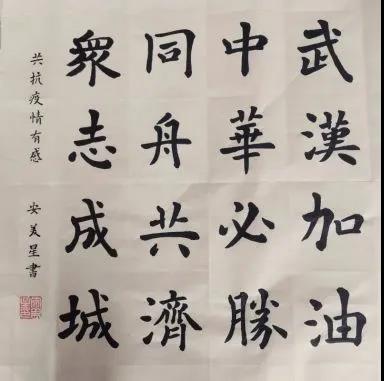 武漢加油
中華必勝
同舟共濟
眾志成城
共抗疫情有感
安美星書